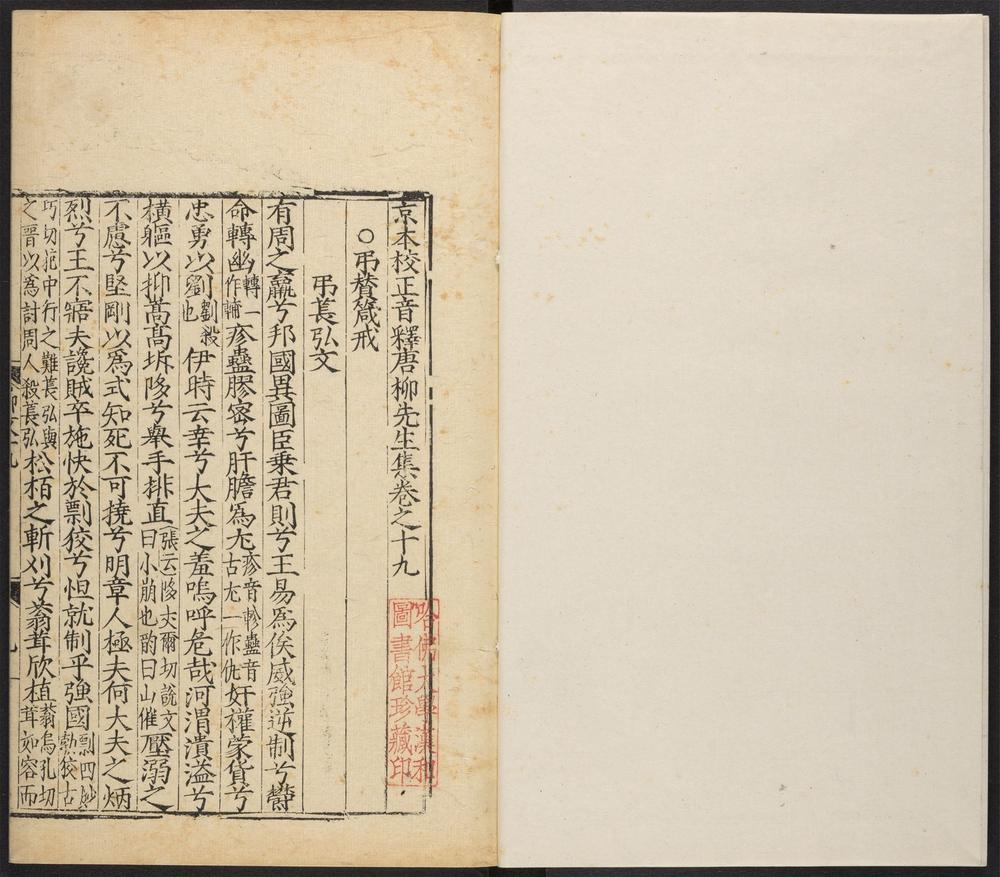 京本校正音釋唐柳先生集卷之十九
○弔贊箴戒
弔萇弘文
有周之羸兮邦國異圖臣乗君則兮王易爲侯威強逆制兮鬱
命轉幽轉一作㡏疹蠱膠密兮肝膽爲尤疹音軫蠱音古尤一作仇奸權蒙貨兮
忠勇以劉劉殺也伊時云幸兮大夫之羞嗚呼危哉河渭潰溢兮
橫軀以抑嵩高坼陊兮舉手排直張云陊丈爾切說文曰小崩也韵曰山催壓溺之
不慮兮堅剛以爲式知死不可撓兮明章人極夫何大夫之炳
烈兮王不寤夫讒賊卒施快於剽狡兮怛就制乎強國剽四妙勡狡古
巧切范中行之難萇弘與之晉以爲討周人殺萇弘松栢之斬刈兮蓊茸欣植蓊烏孔切茸如容而
哈佛大學漢和
圖書館珍藏印